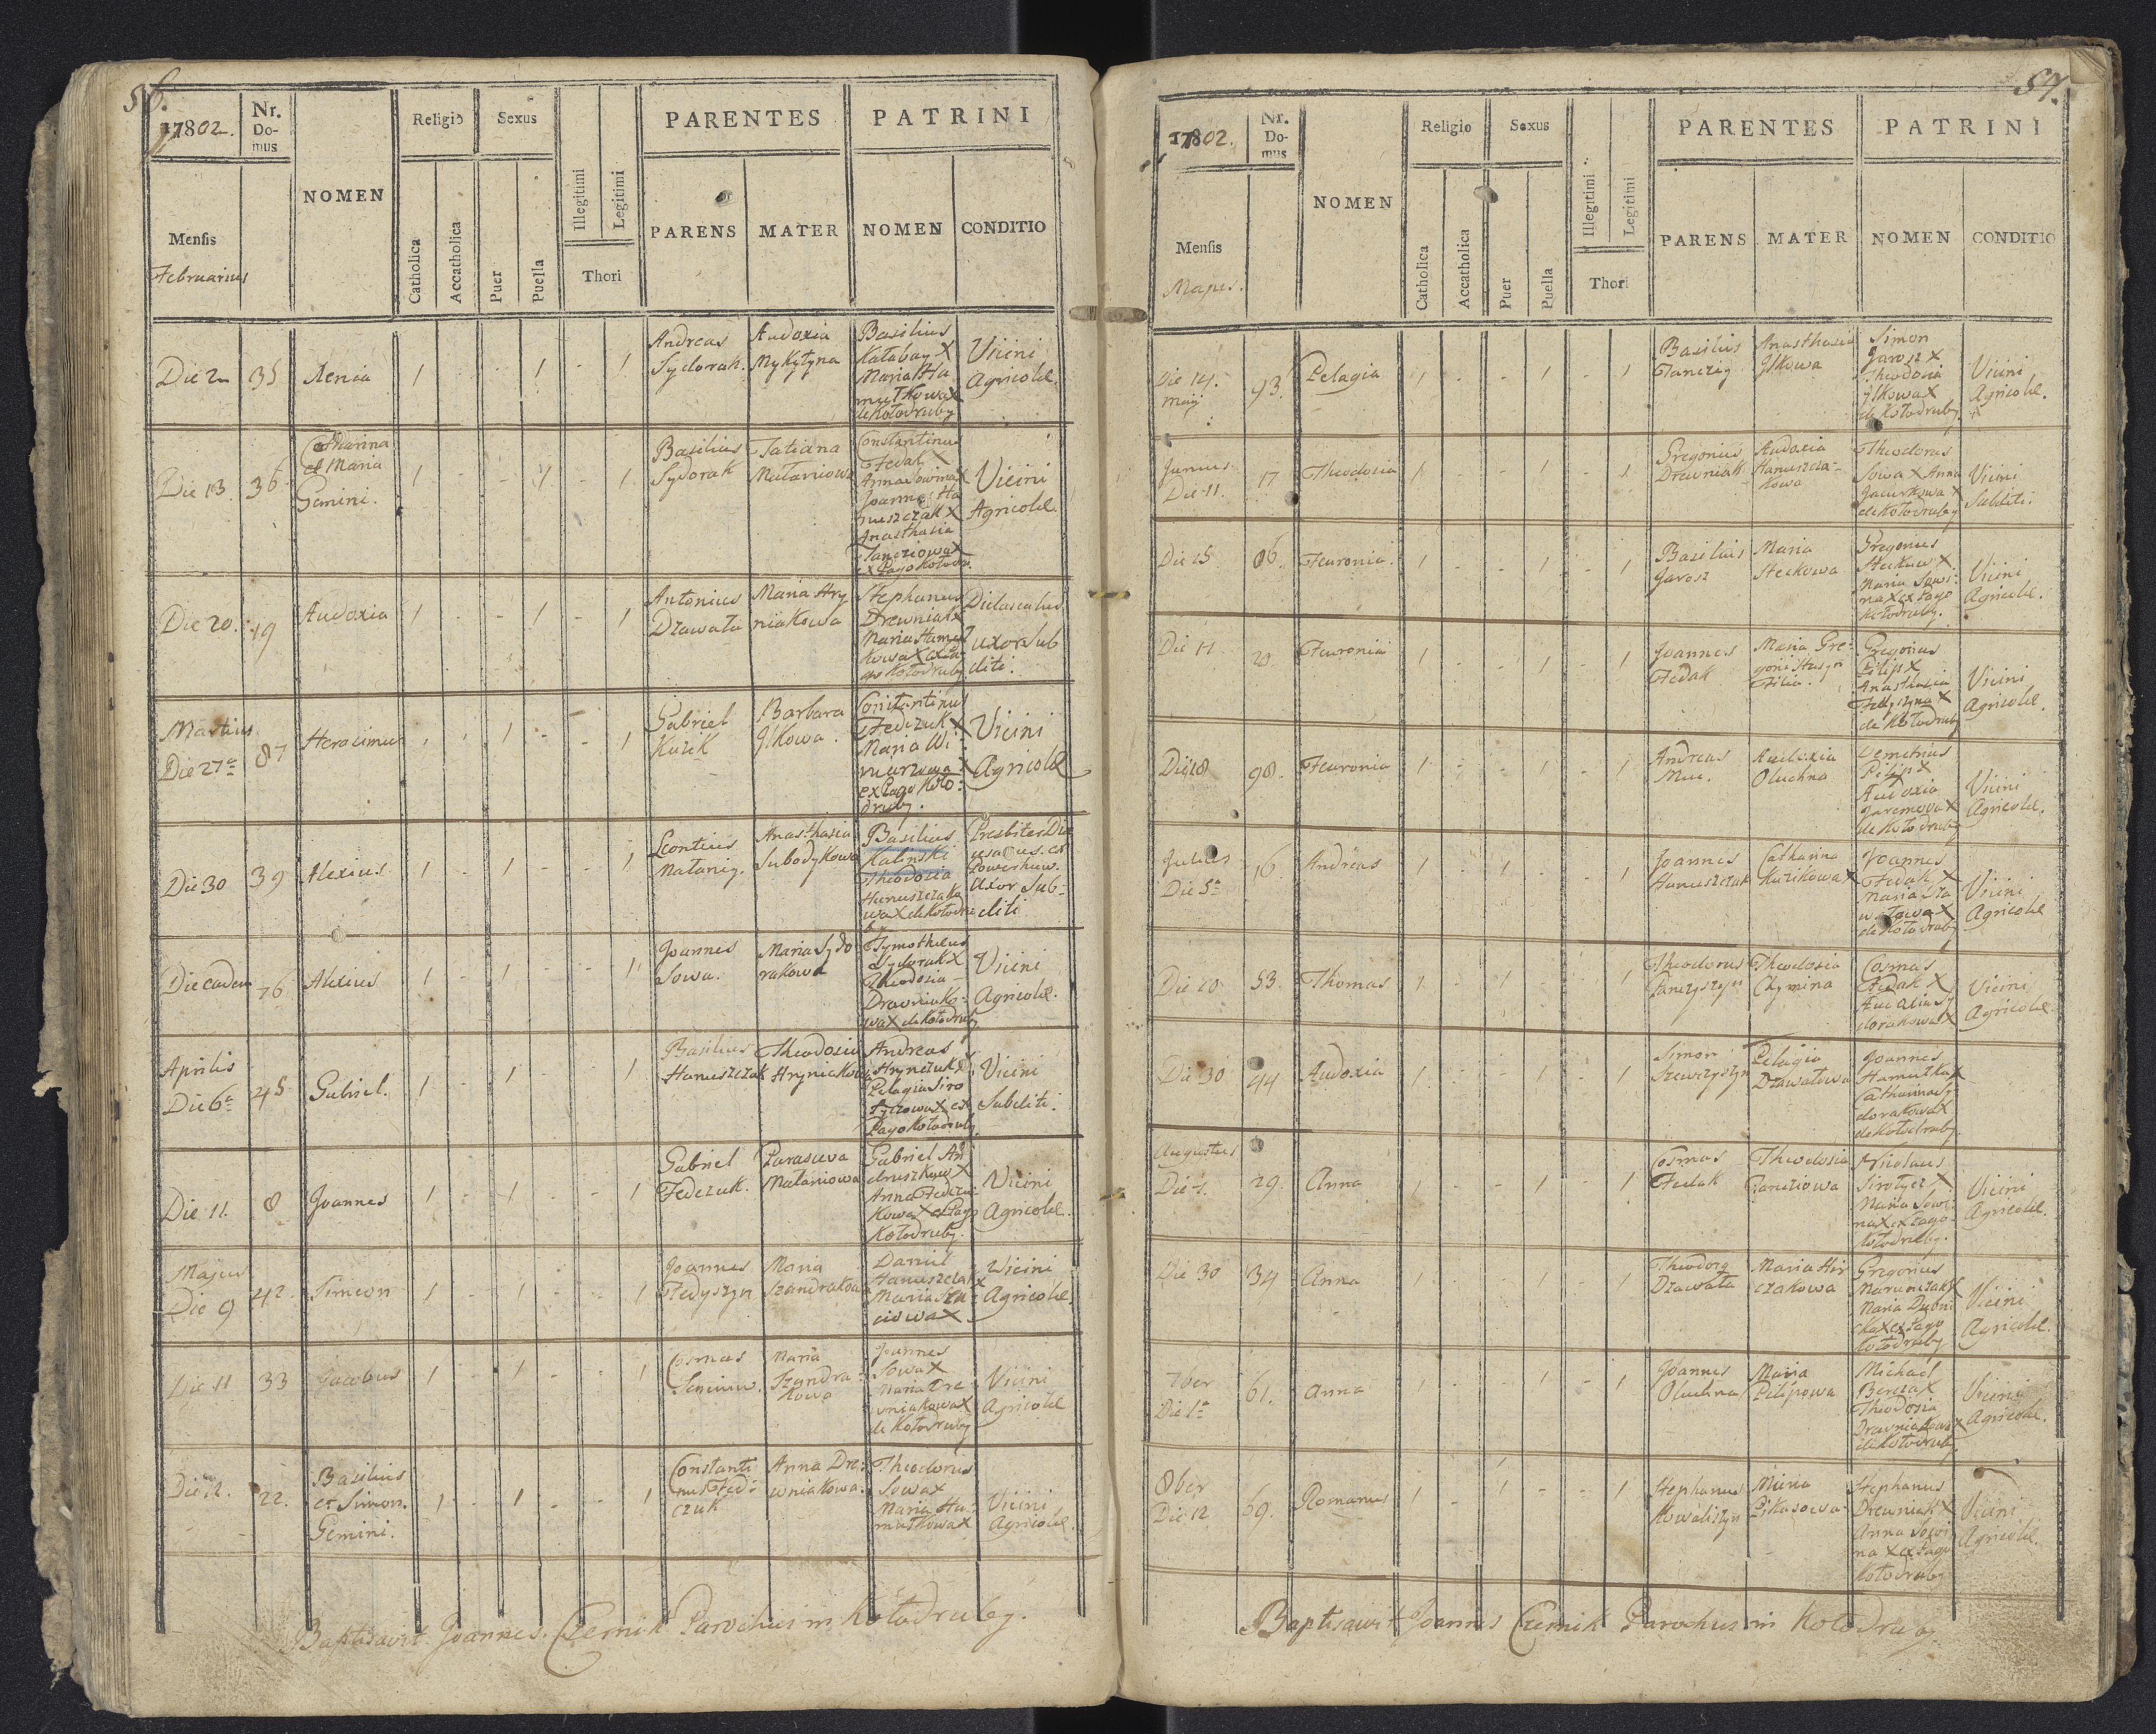 56.
17802.
Nr.
Do-
mus
NOMEN
Religio
Sexus
Illegitimi
Legitimi
PARENTES
PATRINI
Mensis
Februarius
Catholica
Accatholica
Puer
Puella
Thori
PARENS
MATER
NOMEN
CONDITIO
Die 2
35
Xenia
1 - - 1 - 1
Andreas
Sydorak.
Audoxia
Mykityna
Basilius
Kalabay X
Maria Ha
mutkowa X
de Kołodruby
Vicini
Agricolæ.
Die 13.
36
Catharina
et Maria
Gemini.
1 - - 1 - 1
Basilius
Sydorak
Tatiana
Mataniowa
Constantinus
Fedak X
Anna Sowina X
Joannes Ha
nuszczak X
Anasthasia
Tancziowa X
ex Pago Kołodru.
Vicini
Agricolæ.
Die 20.
19
Audoxia
1 - - 1 - 1
Antonius
Dzawała
Maria Hry
niakowa
Stephanus
Drewniak X
Maria Hamut
kowa X ex Pa
go Kołodruby
Didascalus
uxor Sub
diti.
Martius
Die 27a
87
Herasimus
1 - 1 - - 1
Gabriel
Kuzik
Barbara
Jlkowa.
Constantinus
Fedczuk X
Maria Wi
ex Pago Koło-
druby.
Vicini
Agricolæ
Die 30
39
Alexius
1 - 1 - - 1
Leontius
Matanij.
Anasthasia
Subodykowa
Basilius
Kalinski
Theodosia
Hanuszczako
wa X de Kołodru
by
Presbiter
Uxor Sub-
diti
Die eadem
76
Alexius
1 - 1 - - 1
Joannes
Sowa.
Maria Sydo
rakowa
Tymotheus
Sydorak X
Theodosia
Drewniako-
wa X de Kołodruby
Vicini
Agricolæ.
Aprilis
Die 6a
45
Gabriel.
1 - 1 - - 1
Basilius
Hanuszczak
Theodosia
Hryniakowa
Andreas
Hrynczuk X
Pelagia Siro
tyczowa X ex
Pago Kołodruby
Vicini
Subditi.
Die 11.
8
Joannes
1 - 1 - - 1
Gabriel
Fedczuk.
Parasceva
Mataniowa
Gabriel An
druszków X
Anna Fedczu-
kowa X ex Pago
Kołodruby.
Vicini
Agricolæ.
Majus
Die 9
42.
Simeon
1 - 1 - - 1
Joannes
Fedyszyn
Maria
Szandrakowa
Daniel
Hanuszczak X
Maria
ciowa X
Vicini
Agricolæ.
Die 11
33
Jacobus
1 - 1 - - 1
Cosmas
Seniuw.
Maria
Szandra-
kowa
Joannes
Sowa X
Maria Dre
wniakowa X
de Kołodruby
Vicini
Agricolæ
Die 12.
22.
Basilius
et Simon.
Gemini.
1 - 1 - - 1
Constanti
nus Fed-
czuk
Anna Dre-
wniakowa.
Theodorus
Sowa X
Maria Ha-
mutkowa X
Vicini
Agricolæ.
Baptisavit Joannes Czernik Parochus in Kołodruby.
57.
17802.
Nr.
Do-
mus
NOMEN
Religio
Sexus
Illegitimi
Legitimi
PARENTES
PATRINI
Mensis
Majus.
Catholica
Accatholica
Puer
Puella
Thori
PARENS
MATER
NOMEN
CONDITIO
Die 14.
maij
93.
Pelagia
1 - - 1 - 1
Basilius
Tanczij
Anasthasia
Jlkowa
Simon
Jarosz X
Theodosia
Jlkowa X
de Kołodruby
Vicini
Agricolæ.
Junius
Die 11.
17
Theodosia
1 - - 1 - 1
Gregorius
Drewniak
Audoxia
Hanuszcza-
kowa
Theodorus
Sowa X Anna
Jacurkowa X
de Kołodruby
Vicini
Subditi.
Die 15
86.
Feuronia.
1 - - 1 - 1
Basilius
Jarosz
Maria
Steckowa
Gregorius
Steckuw X
Maria Sowi-
na X ex Pago
Kołodruby.
Vicini
Agricolæ.
Die 17.
20.
Feuronia
1 - - 1 - 1
Joannes
Fedak
Maria Gre-
gorii
Filia.
Gregorius
Pilip X
Anasthasia
Fedyszyna X
de Kołodruby
Vicini
Agricolæ.
Die 18
98.
Feuronia
1 - - 1 - 1
Andreas
Muc.
Audoxia
Oluchna
Demetrius
Pilip X
Audoxia
Jaremowa X
de Kołodruby
Vicini
Agricolæ.
Julius
Die 5a
16.
Andreas
1 - 1 - - 1
Joannes
Hanuszczak
Catharina
Kuzikowa X
Joannes
Fedak X
Maria Dza
wałowa X
de Kołodruby
Vicini
Agricolæ
Die 20
53.
Thomas
1 - 1 - - 1
Theodorus
Panczyszyn
Theodosia
Chymina
Cosmas
Fedak X
Audoxia Sy
dorakowa X
Vicini
Agricolæ.
Die 30
44
Audoxia
1 - - 1 - 1
Simon
Szewczyszyn
Pelagia
Dzawałowa
Joannes
Hamutka X
Catharina Sy
dorakowa X
de Kołodruby
Augustus
Die 7.
29.
Anna
1 - - 1 - 1
Cosmas
Fedak
Theodosia
Tancziowa
Nicolaus
Sirotycz X
Maria Sowi-
na X ex Pago
Kołodruby.
Vicini
Agricolæ.
Die 30
34
Anna
1 - - 1 - 1
Theodorg
Dzawała
Maria Hir
czakowa
Gregorius
Marunczak X
Maria Dubni
cka X ex Pago
Kołodruby
Vicini
Agricolæ.
7ber
Die 1a
61.
Anna
1 - - 1 - 1
Joannes
Oluchna
Maria
Pilipowa
Michael
Bereza X
Theodosia
Drewniakowa X
de Kołodruby
Vicini
Agricolæ.
8ber
Die 12
69.
Romanus
1 - 1 - - 1
Stephanus
Kowaliszyn
Maria
Pikasowa
Stephanus
Drewniak X
Anna Sowi
na X ex Pago
Kołodruby
Vicini
Agricolæ.
Baptisavit Joannes Czernik Parochus in Kołodruby